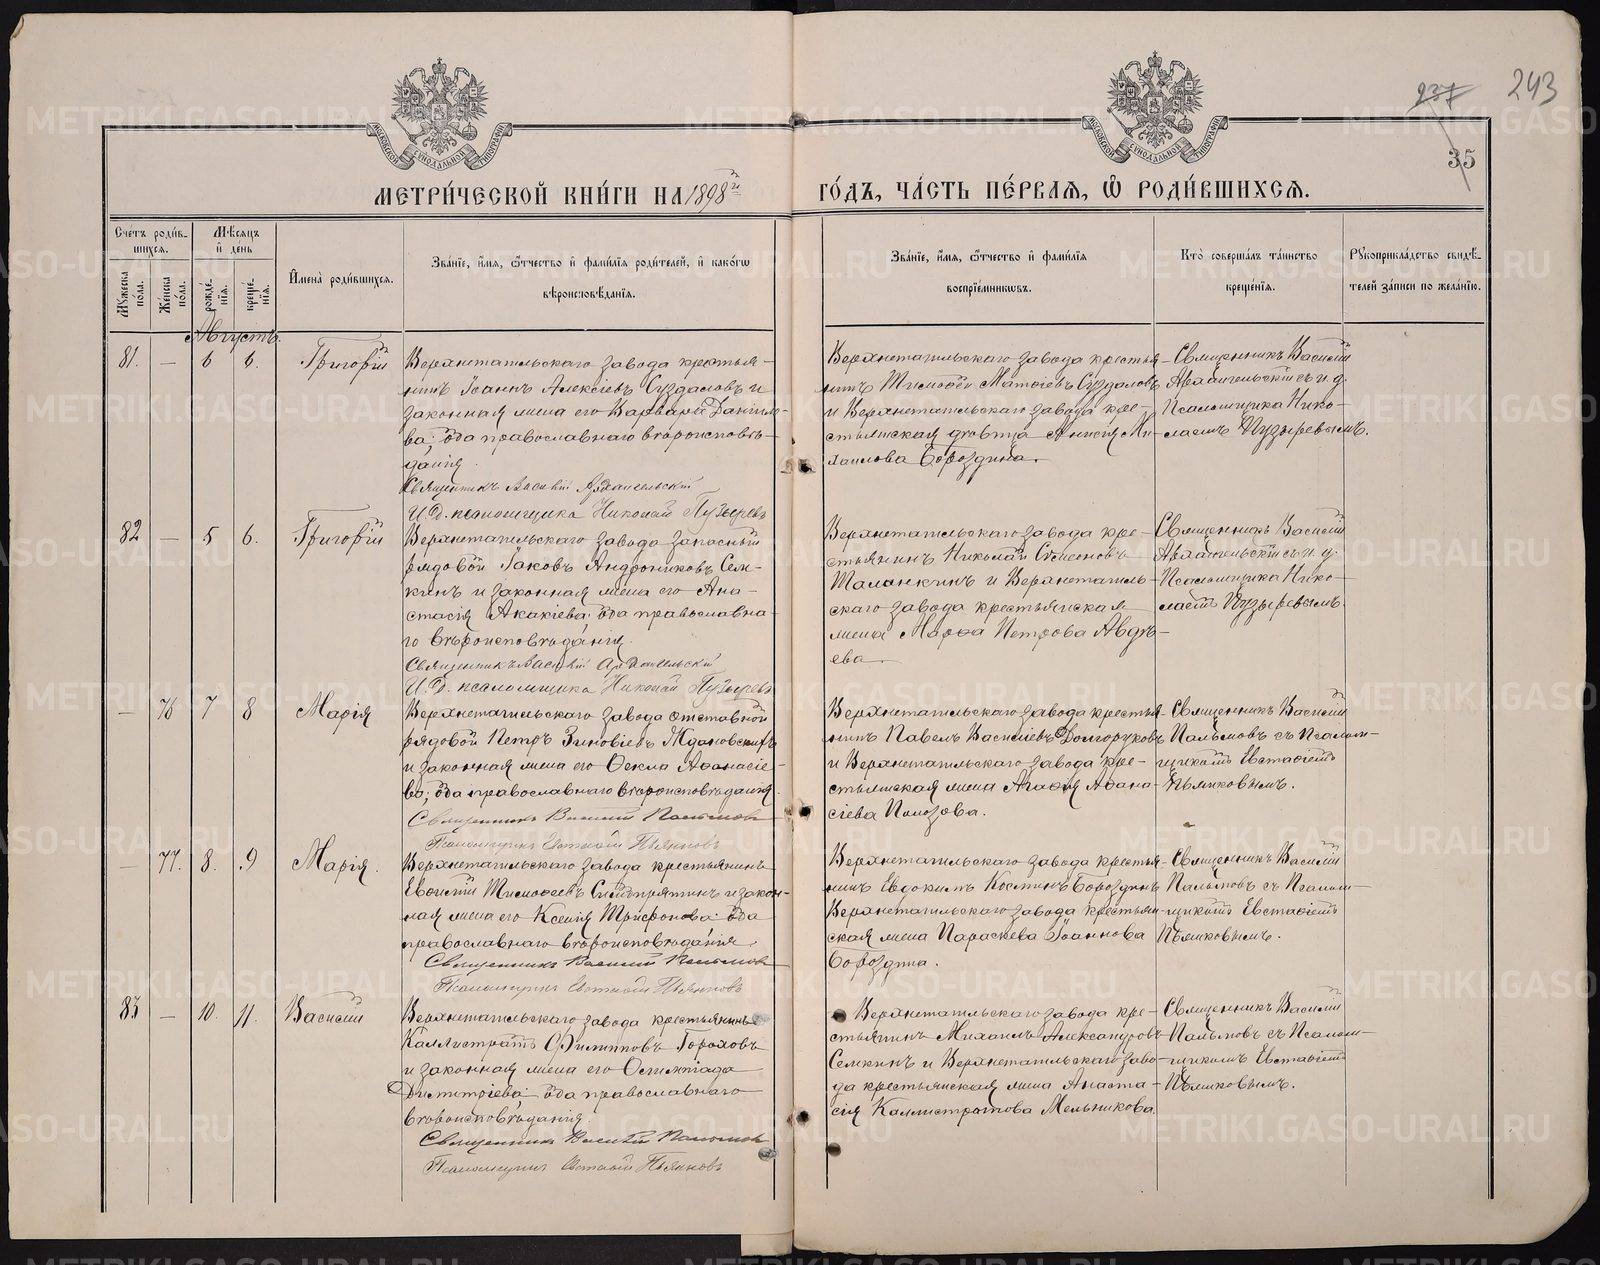 237
243
35
МОСКОВСКОЙ СѴНОДАЛЬНОЙ ТИПОГРАФІИ
МОСКОВСКОЙ СѴНОДАЛЬНОЙ ТИПОГРАФІИ
МЕТРИ́ЧЕСКОЙ КНИ́ГИ НА 1898й
ГО́ДЪ, ЧА́СТЬ ПЕ́РВАЯ, Ѽ РОДИ́ВШИХСЯ.
Сче́тъ роди́в-
шихся.
Мѣ́сяцъ
и҆ де́нь
И҆мена̀ роди́вшихся.
Зва́нїе, и҆́мя, ѻ҆́тчество и҆ фами́лїя роди́телей, и҆ како́гѡ
вѣроисповѣ́данїя.
Зва́нїе, и҆́мя, ѻ҆́тчество и҆ фами́лїя
воспрїе́мникѡвъ.
Кто̀ соверша́лъ та́инство
креще́нїя.
Рꙋкоприкла́дство свидѣ́-
телей за́писи по жела́нїю.
Мꙋ́жеска
по́ла.
Же́нска
по́ла.
рожде́-
нїя.
креще́-
нїя.
Августъ.
81. — 6 6. Григорій
Верхнетагильскаго завода крестья-
нинъ Іоаннъ Алексіевъ Суздаловъ и
законная жена его Варвара Даніило-
ва; оба православнаго вѣроисповѣ-
данія.
Священникъ Василій Архангельскій
И. д. псаломщика Николай Пузыревъ
Верхнетагильскаго завода крестья-
нинъ Тимофей Матѳіевъ Суздаловъ
и Верхнетагильскаго завода кре-
стьянская дѣвица Анисія Ми-
хаилова Бороздина.
Священникъ Василій
Архангельскій съ и. д.
Псаломщика Нико-
лаемъ Пузыревымъ.
82 — 5 6. Григорій
Верхнетагильскаго завода запасный
рядовой Іаковъ Андрониковъ Сем-
кинъ и законная жена его Ана-
стасія Акакіева; оба православна-
го вѣроисповѣданія.
Священникъ Василій Архангельскій
И. д. псаломщика Николай Пузыревъ
Верхнетагильскаго завода кре-
стьянинъ Николай Симеоновъ
Таланкинъ и Верхнетагиль-
скаго завода крестьянская
жена Марѳа Петрова Авдѣ-
ева.
Священникъ Василій
Архангельскій съ и. д.
Псаломщика Нико-
лаемъ Пузыревымъ.
— 76 7 8 Марія
Верхнетагильскаго завода отставной
рядовой Петръ Зиновіевъ Ждановскихъ
и законная жена его Ѳекла Аѳанасіе-
ва; оба православнаго вѣроисповѣданія.
Священникъ Василій Пальмовъ
Псаломщикъ Евстаѳій Пьянковъ
Верхнетагильскаго завода крестья-
нинъ Павелъ Василіевъ Долгоруковъ
и Верхнетагильскаго завода кре-
стьянская жена Агаѳія Аѳана-
сіева Полозова.
Священникъ Василій
Пальмовъ съ Псалом-
щикомъ Евстаѳіемъ
Пьянковымъ.
— 77. 8. 9 Марія.
Верхнетагильскаго завода крестьянинъ
Евсигній Тимоѳеевъ и закон-
ная жена его Ксенія Трифонова; оба
православнаго вѣроисповѣданія.
Священникъ Василій Пальмовъ
Псаломщикъ Евстаѳій Пьянковъ
Верхнетагильскаго завода крестья-
нинъ Евдокимъ Косминъ Бороздинъ
Верхнетагильскаго завода крестьян-
ская жена Параскева Іоаннова
Бороздина.
Священникъ Василій
Пальмовъ съ Псалом-
щикомъ Евстаѳіемъ
Пьянковымъ.
83 — 10. 11. Василій
Верхнетагильскаго завода крестьянинъ
Каллистратъ Филипповъ Гороховъ
и законная жена его
Димитріева; оба православнаго
вѣроисповѣданія.
Священникъ Василій Пальмовъ
Псаломщикъ Евстаѳій Пьянковъ
Верхнетагильскаго завода кре-
стьянинъ Михаилъ Александровъ
Семкинъ и Верхнетагильскаго заво-
да крестьянская жена Анаста-
сія Каллистратова Мельникова.
Священникъ Василій
Пальмовъ съ Псалом-
щикомъ Евстаѳіемъ
Пьянковымъ.
METRIKI.GASO-URAL.RU